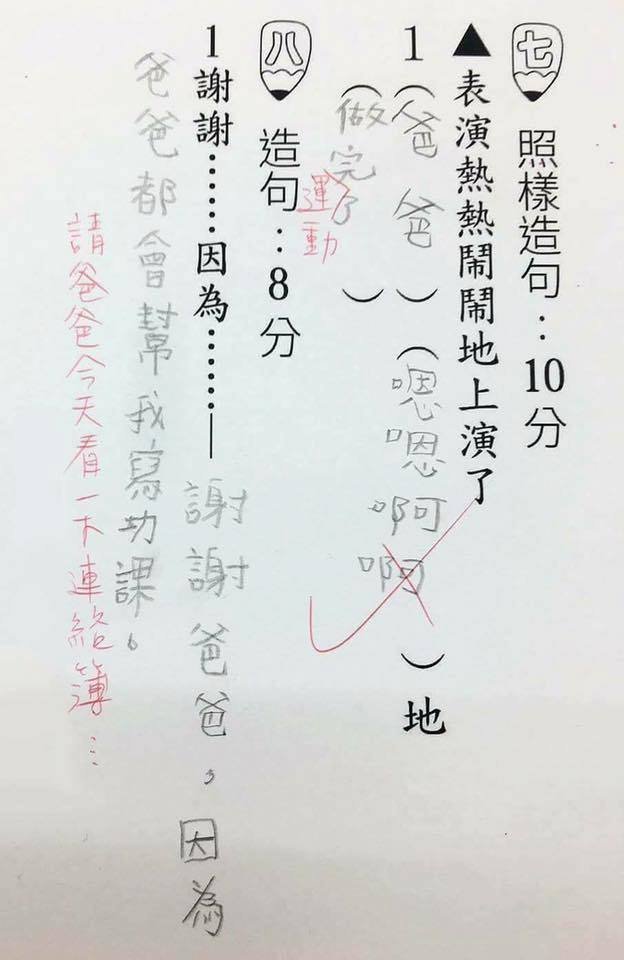 七 照樣造句：10分
▲表演熱熱鬧鬧地上演了
1（爸爸）（嗯嗯啊啊）地
（做完了）
運動
八 造句：8分
1謝謝……因為……—謝謝爸爸，因為
爸爸都會幫我寫功課。
請爸爸今天看一下連絡簿…